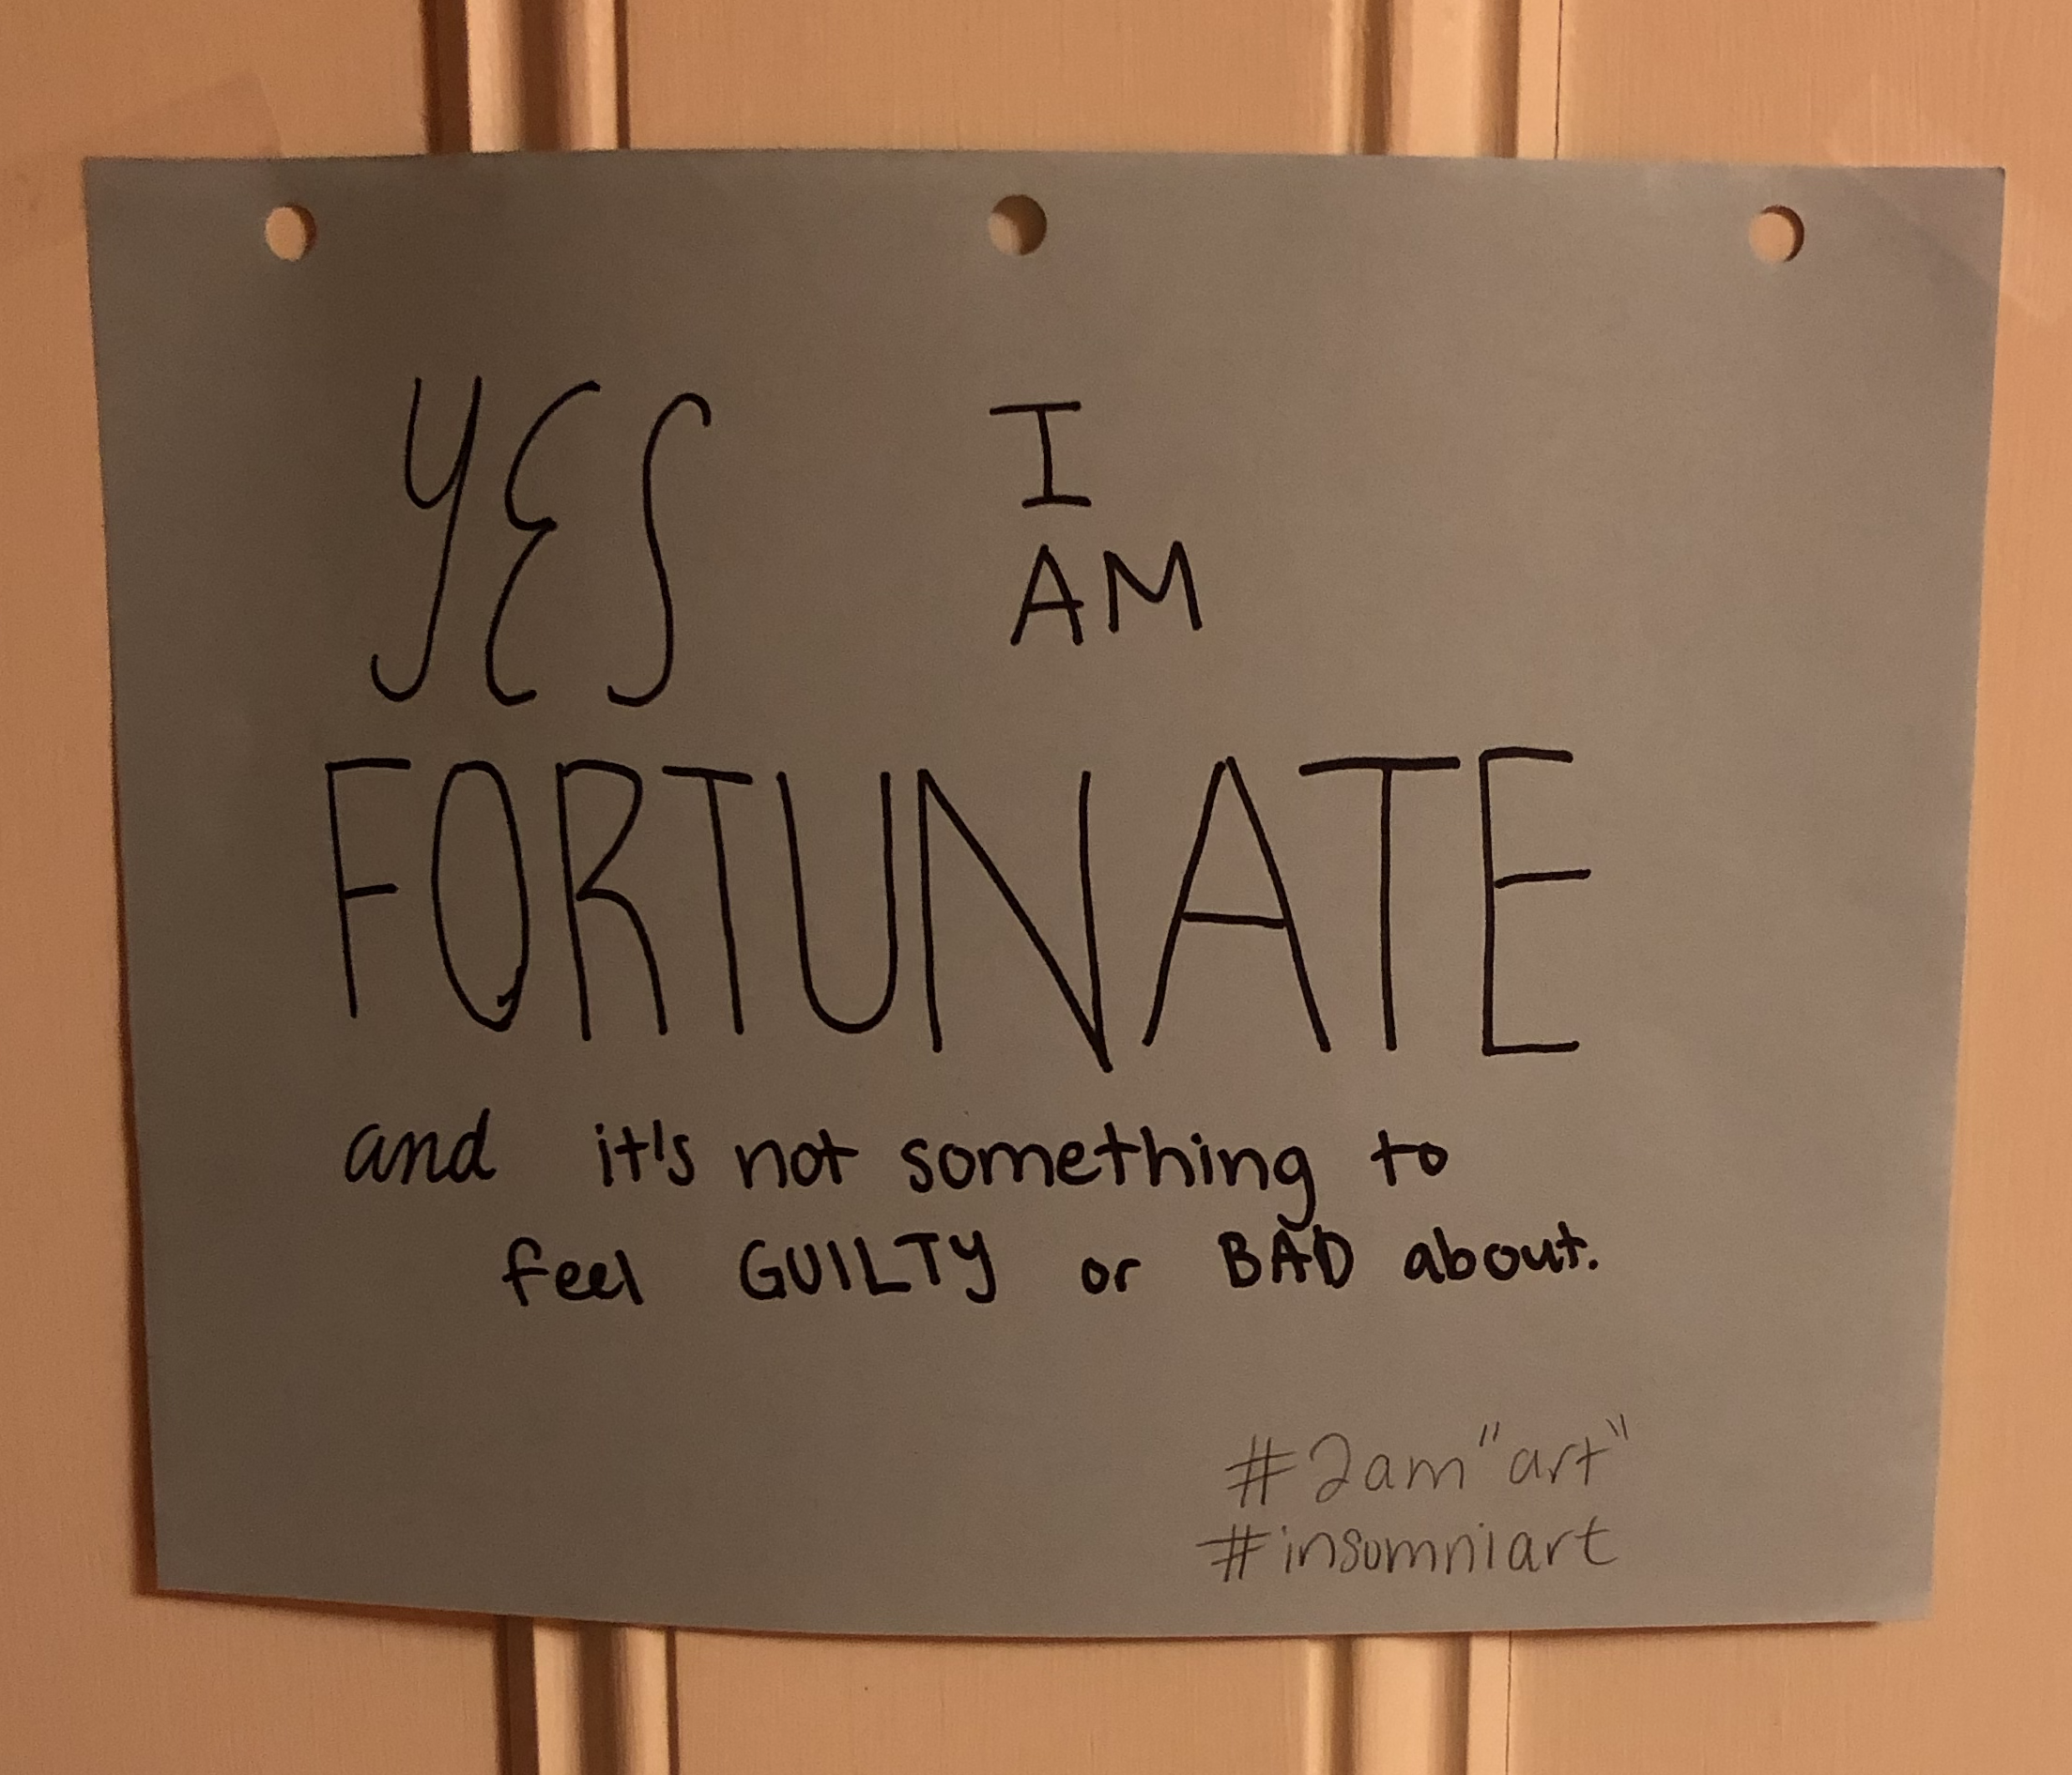 YES I
AM
FORTUNATE
and it's not something to
feel GUILTY or BAD about.
#2am "art"
#insomniart